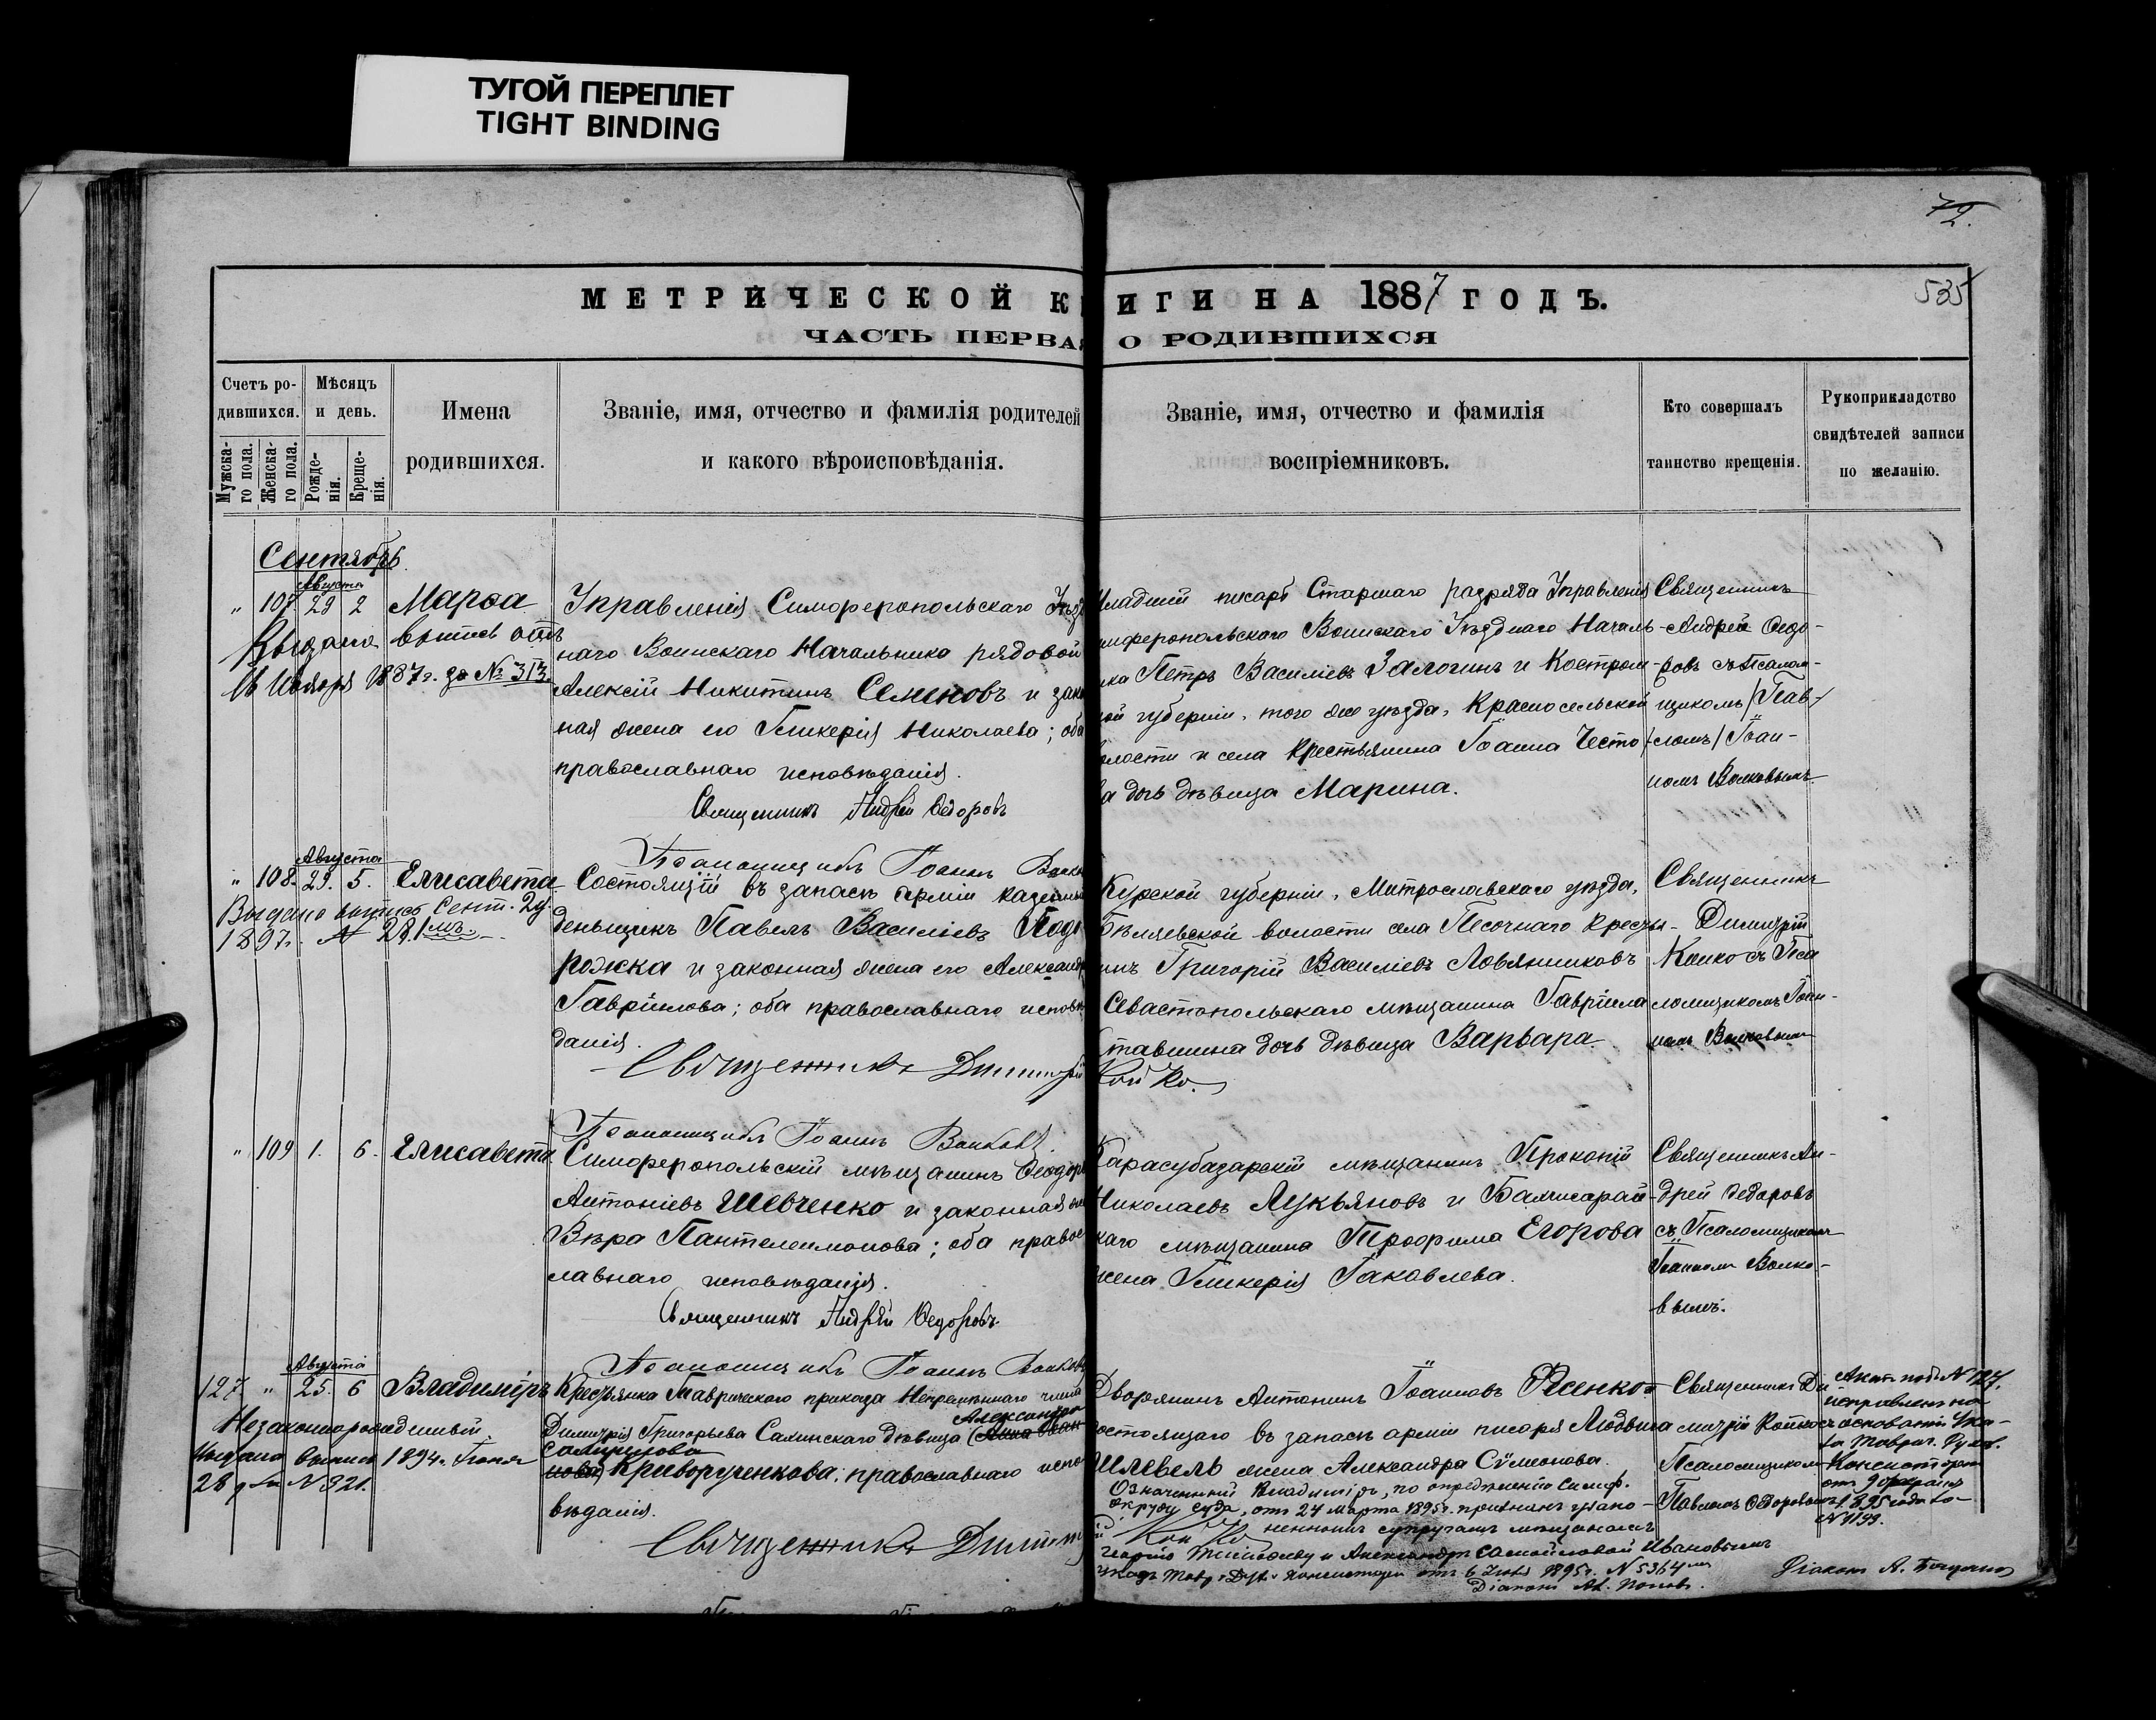 ТУГОЙ ПЕРЕПЛЕТ
TIGHT BINDING
72.
535
МЕТРИЧЕСКОЙ КНИГИ НА 1887 ГОДЪ.
ЧАСТЬ ПЕРВАЯ О РОДИВШИХСЯ
Счетъ ро-
дившихся.
Мужска-
го пола.
Женска-
го пола.
Мѣсяцъ
и день.
Рожде-
нія.
Креще-
нія.
Имена
родившихся.
Званіе, имя, отчество и фамилія родителей
и какого вѣроисповѣданія.
Званіе, имя, отчество и фамилія
воспріемниковъ.
Кто совершалъ
таинство крещенія.
Рукоприкладство
свидѣтелей записи
по желанію.
Сентябрь.
Августа
" 107 29 2 Марѳа
Выдана выпись
16 Ноября 1887 г. за № 313.
Управленія Симферопольскаго Уѣзд
наго Воинскаго Начальника рядовой
Алексій Никитинъ Семеновъ и зако
ная жена его Гликерія Николаева; оба
православнаго исповѣданія.
Священникъ Андрей Ѳедоровъ
Псаломщикъ Іоаннъ Волков
Младшій писарь Старшаго разряда Управленія
имферопольскаго Воинскаго Уѣзднаго Началь-
ика Петръ Василіевъ Залогинъ и Костром-
ой губерніи, того же уѣзда, Красносельской
олости и села крестьянина Іоанна Честно
ва дочь дѣвица Марина.
Священникъ
Андрей Ѳедо-
ровъ съ Псалом-
щикомъ
Іоан-
номъ Волковымъ.
Августа
" 108. 29. 5. Елисавета
Выдана выпись Сент. 29
1897 г. № 281
Состоящій въ запасѣ арміи казенный
деньщикъ Павелъ Василіевъ Подо
рожка и законная жена его Александр
Гавріилова; оба православнаго исповѣ
данія.
Священникъ Димитрій Койко.
Псаломщикъ Іоаннъ Волковъ.
Курской губерніи,
уѣзда,
Бѣляевской волости села Песочнаго крестья-
инъ Григорій Василіевъ Ловянниковъ
Севастопольскаго мѣщанина Гавріила
дочь дѣвица Варвара
Священникъ
Димитрій
Койко съ Пса
ломщикомъ Іоан-
номъ Волковымъ
" 109 1. 6. Елисавета
Симферопольскій мѣщанинъ Ѳеодоръ
Антоніевъ Шевченко и законная же
Вѣра Пантелеимонова; оба правос
лавнаго исповѣданія.
Священникъ Андрей Ѳедоровъ
Псаломщикъ Іоаннъ Волковъ
Карасубазарскій мѣщанинъ Прокопій
Николаевъ Лукьяновъ и Бахчисарай-
скаго мѣщанина Трофима Егорова
жена Гликерія Іаковлева.
Священникъ Ан-
дрей Ѳедоровъ
съ Псаломщикомъ
Іоанномъ Волко-
вымъ.
Августа
127. " 25. 6 Владиміръ
Незаконнорожденный.
Выдана выпись 1894 г. Іюня
28 дня № 321.
Крестьянка Таврическаго приказа Непремѣннаго члена
Димитрія Григорьева Сахинскаго дѣвица (Анна Иван
Александра
Самуилова
нова) Криворученкова, православнаго испо
вѣданія.
Священникъ Димит
Койко
Дворянинъ Антонинъ Іоанновъ
остоящаго въ запасѣ арміи писаря Людвига
Шлевель жена Александра Сѵмеонова.
Означенный Владиміръ, по опредѣленію Симф.
Окруж. Суда, отъ 24 марта 1895 г. признанъ узако-
неннымъ супругами мѣщанами
и Александрой Самойловой Ивановыми
указъ Тавр. Дух. Консисторіи отъ 6 Іюня 1895 г. № 5364
Діаконъ Ал. Поповъ.
Священникъ Ди
митрій Койко съ
Псаломщикомъ
Павломъ Ѳедоровымъ
Актъ подъ № 127.
исправленъ на
основаніи Ука-
за Таврич. Духов.
Консисторіи
отъ 9 февраля
1895 года за
№ 1149.
Діаконъ А.